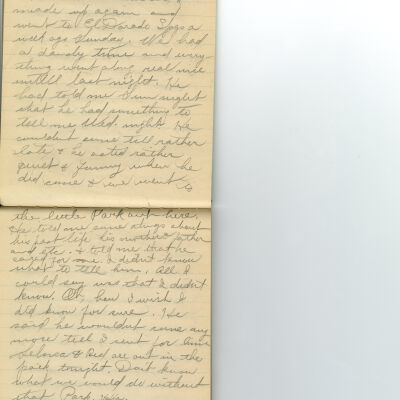 made up again and
went to El Dorado Spgs a
week ago Sunday. We had
a dandy time and every-
thing went along real nice
untill last night. He
had told me Sun night
that he had something to
tell me Wed. night. He
couldn't come till rather
late & he acted rather
quiet & funny when he
did come & we went to
the little Park out here.
He told me some things about
his past life his mother father
and etc. & told me that he
cared for me. I didn't know
what to tell him. All I
could say was that I didn't
know. Oh, how I wish I
did know for sure. He
said he wouldn't come any
more till I sent for him.
& Red are out in the
park tonight. Don't know
what we would do without
that Park.